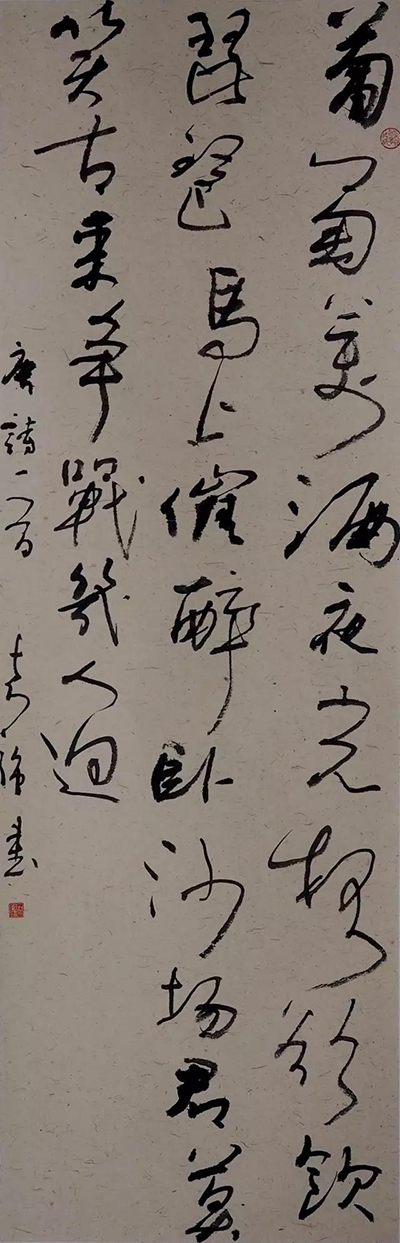 葡萄美酒夜光杯欲飲
琵琶馬上催醉卧沙場君莫
笑古來爭戰幾人迴
唐詩一首 書